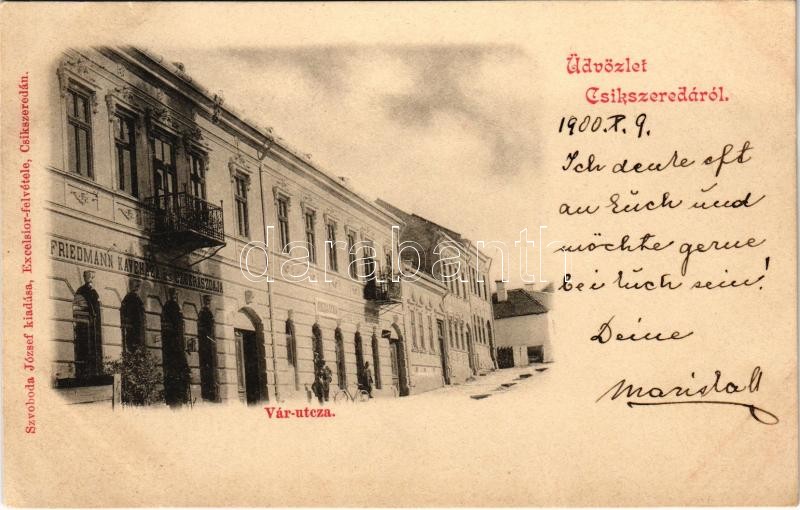 Üdvözlet
Csikszeredáról.
1900. X. 9.
Ich denke oft
an Euch und
möchte gerne
bei Euch sein!
Deine
FRIEDMANN KÁVÉHÁZA
Vár-utcza.
Szvoboda József kiadása, Excelsior-felvétele, Csikszeredán.
darabanth